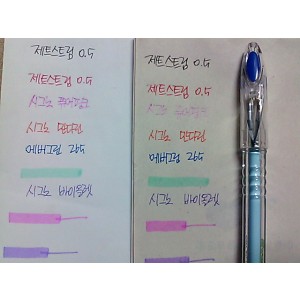 제트스트림 0.5
제트스트림 0.5
시그노
시그노 만다린
에버그린
시그노 바이올렛
제트스트림 0.5
제트스트림 0.5
시그노
시그노 만다린
에버그린
시그노 바이올렛